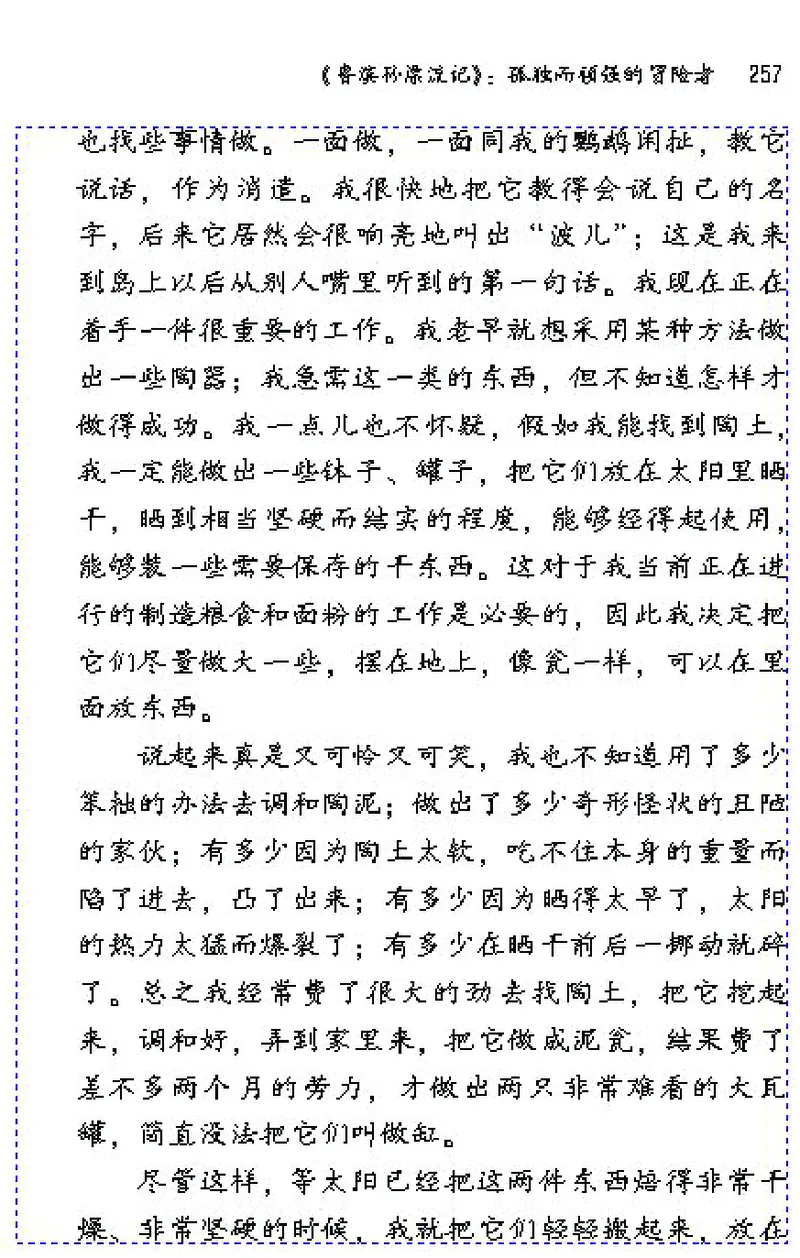 《鲁滨孙漂流记》：孤独而顽强的冒险者 257
也找些事情做。一面做，一面同我的鹦鹉闲扯，教它
说话，作为消遣。我很快地把它教得会说自己的名
字，后来它居然会很响亮地叫出“波儿”；这是我来
到岛上以后从别人嘴里听到的第一句话。我现在正在
着手一件很重要的工作。我老早就想采用某种方法做
出一些陶器；我急需这一类的东西，但不知道怎样才
做得成功。我一点儿也不怀疑，假如我能找到陶土，
我一定能做出一些钵子、罐子，把它们放在太阳里晒
干，晒到相当坚硬而结实的程度，能够经得起使用，
能够装一些需要保存的干东西。这对于我当前正在进
行的制造粮食和面粉的工作是必要的，因此我决定把
它们尽量做大一些，摆在地上，像瓮一样，可以在里
面放东西。
说起来真是又可怜又可笑，我也不知道用了多少
笨拙的办法去调和陶泥；做出了多少奇形怪状的丑陋
的家伙；有多少因为陶土太软，吃不住本身的重量而
陷了进去，凸了出来；有多少因为晒得太早了，太阳
的热力太猛而爆裂了；有多少在晒干前后一挪动就碎
了。总之我经常费了很大的劲去找陶土，把它挖起
来，调和好，弄到家里来，把它做成泥瓮，结果费了
差不多两个月的劳力，才做出两只非常难看的大瓦
罐，简直没法把它们叫做缸。
尽管这样，等太阳已经把这两件东西焙得非常干
燥、非常坚硬的时候，我就把它们轻轻搬起来，放在